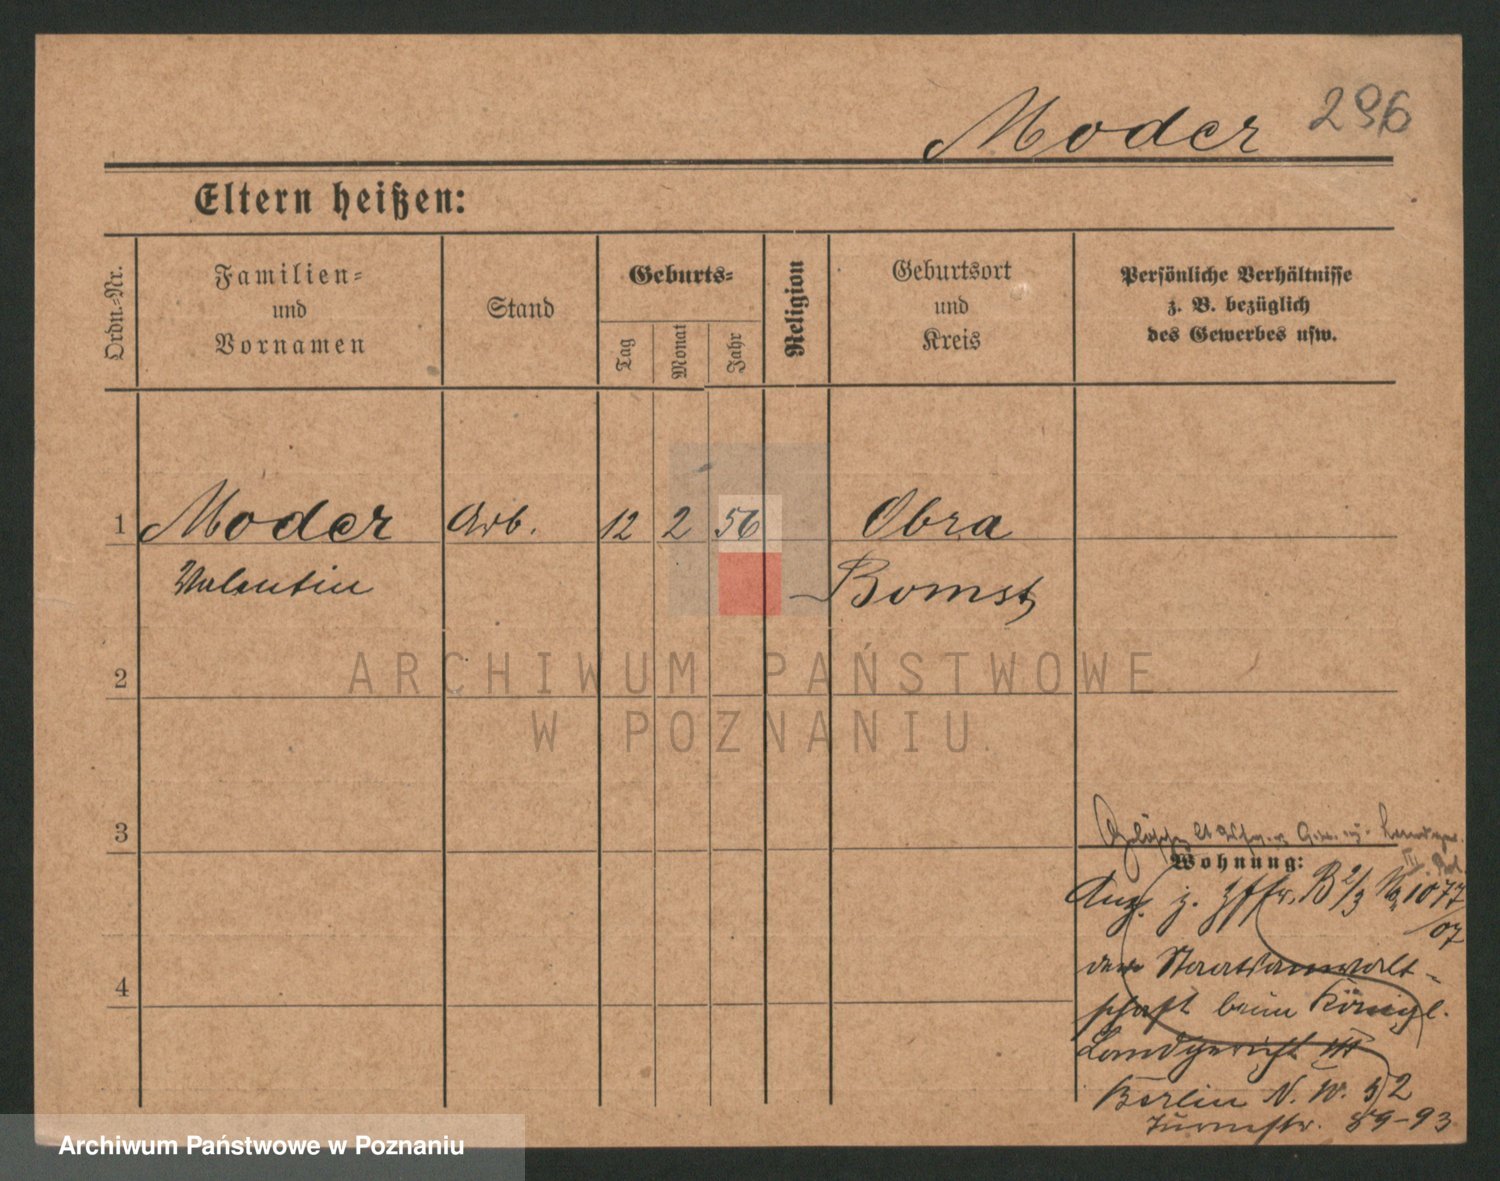 Moder 296
Eltern heißen:
Ordn.-Nr.
Familien-
und
Vornamen
Stand
Geburts-
Tag
Monat
Jahr
Religion
Geburtsort
und
Kreis
Persönliche Verhältnisse
z. B. bezüglich
des Gewerbes usw.
1 Moder Arb. 12 2 56 Obra
Valentin Bomst
ARCHIWUM PAŃSTWOWE
W POZNANIU.
2
3
4
Wohnung:
Anz. z. B 2/3 No 1077
/07
der Staatsanwalt-
schaft beim Königl.
Landgericht III
Berlin N. W. 52
Turmstr. 89-93
Archiwum Państwowe w Poznaniu